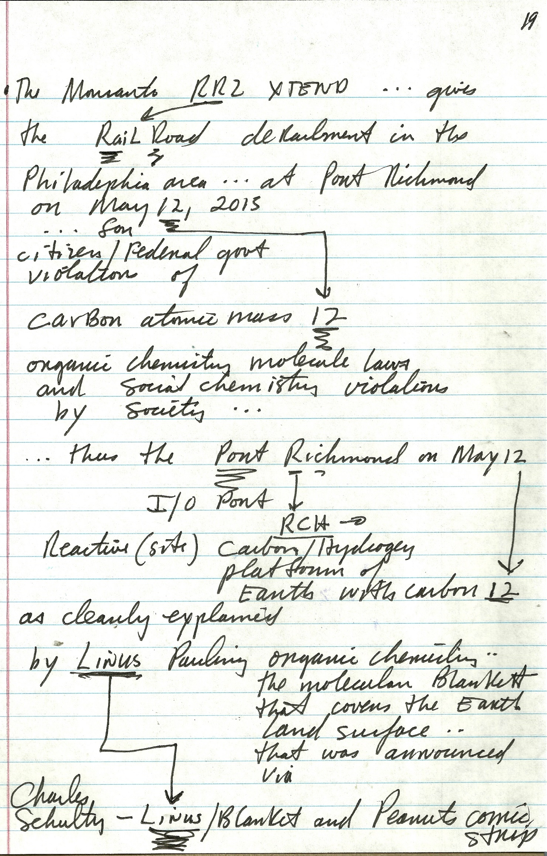 19
• The Monsanto RR2 XTEND ... gives
the RaiL Road derailment in the
Philadelphia area ... at Port Richmond
on May 12, 2015
.... Son
citizen/Federal govt
violation of
carbon atomic mass 12
organic chemistry molecule laws
and social chemistry violations
by society ...
... thus the Port Richmond on May 12
I/O Port
RCH →
Reactive (site) Carbon/Hydrogen
platform of
Earth with carbon 12
as clearly explained
by LiNUS Pauling organic chemistry ..
the molecular Blankett
that covers the Earth
land surface ..
that was announced
via
Charles
Schultz - LiNUS/Blanket and Peanuts comic
strip